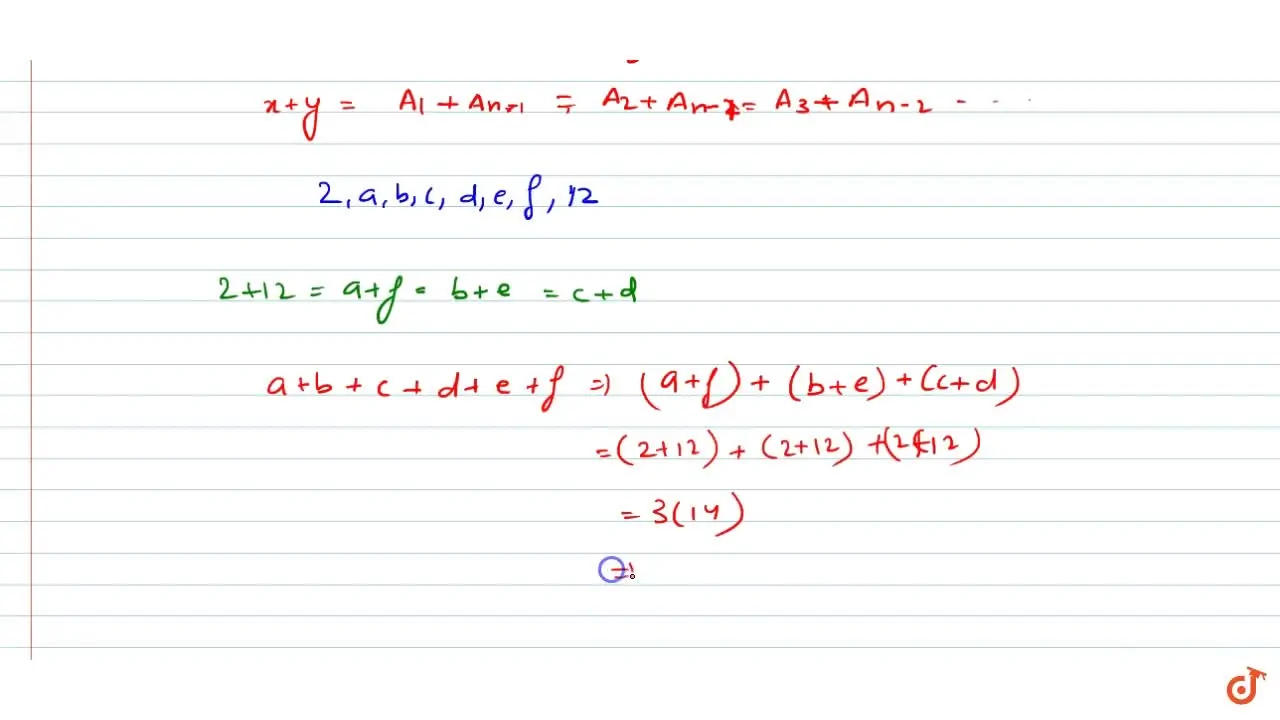 x+y = A1 + An+1 = A2 + An-1 = A3 + An-2 - - .
2, a, b, c, d, e, f, 12
2+12 = a+f = b+e = c+d
a+b+c+d+e+f ⇒ (a+f)+(b+e)+(c+d)
=(2+12)+(2+12)+(2+12)
= 3(14)
=